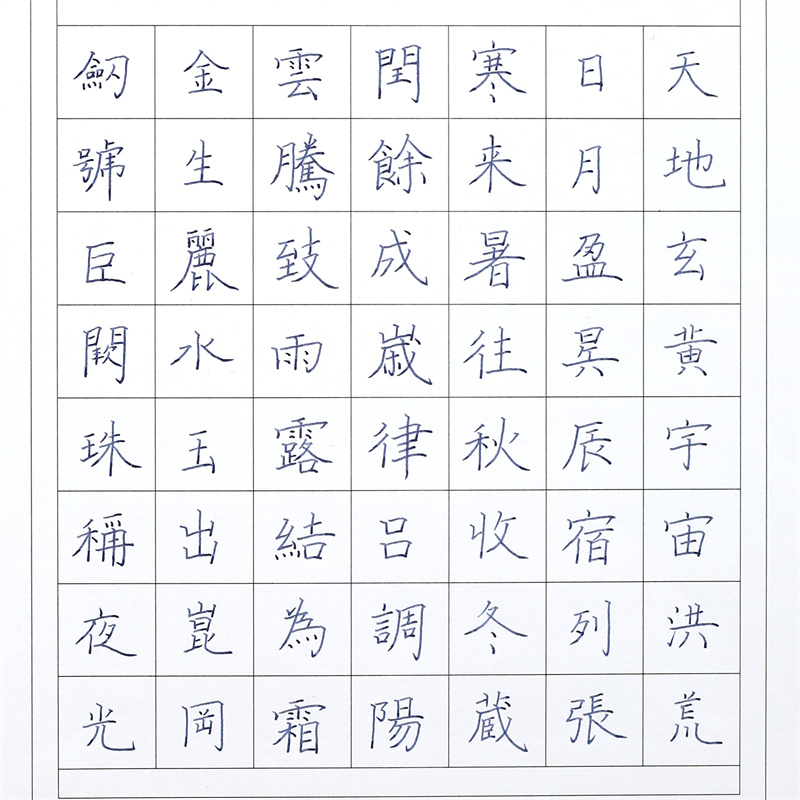 天地玄黄宇宙洪荒
日月盈昃辰宿列張
寒来暑往秋收冬蔵
閏餘成歳律吕調陽
雲騰致雨露結為霜
金生麗水玉出崑岡
劒號巨闕珠稱夜光